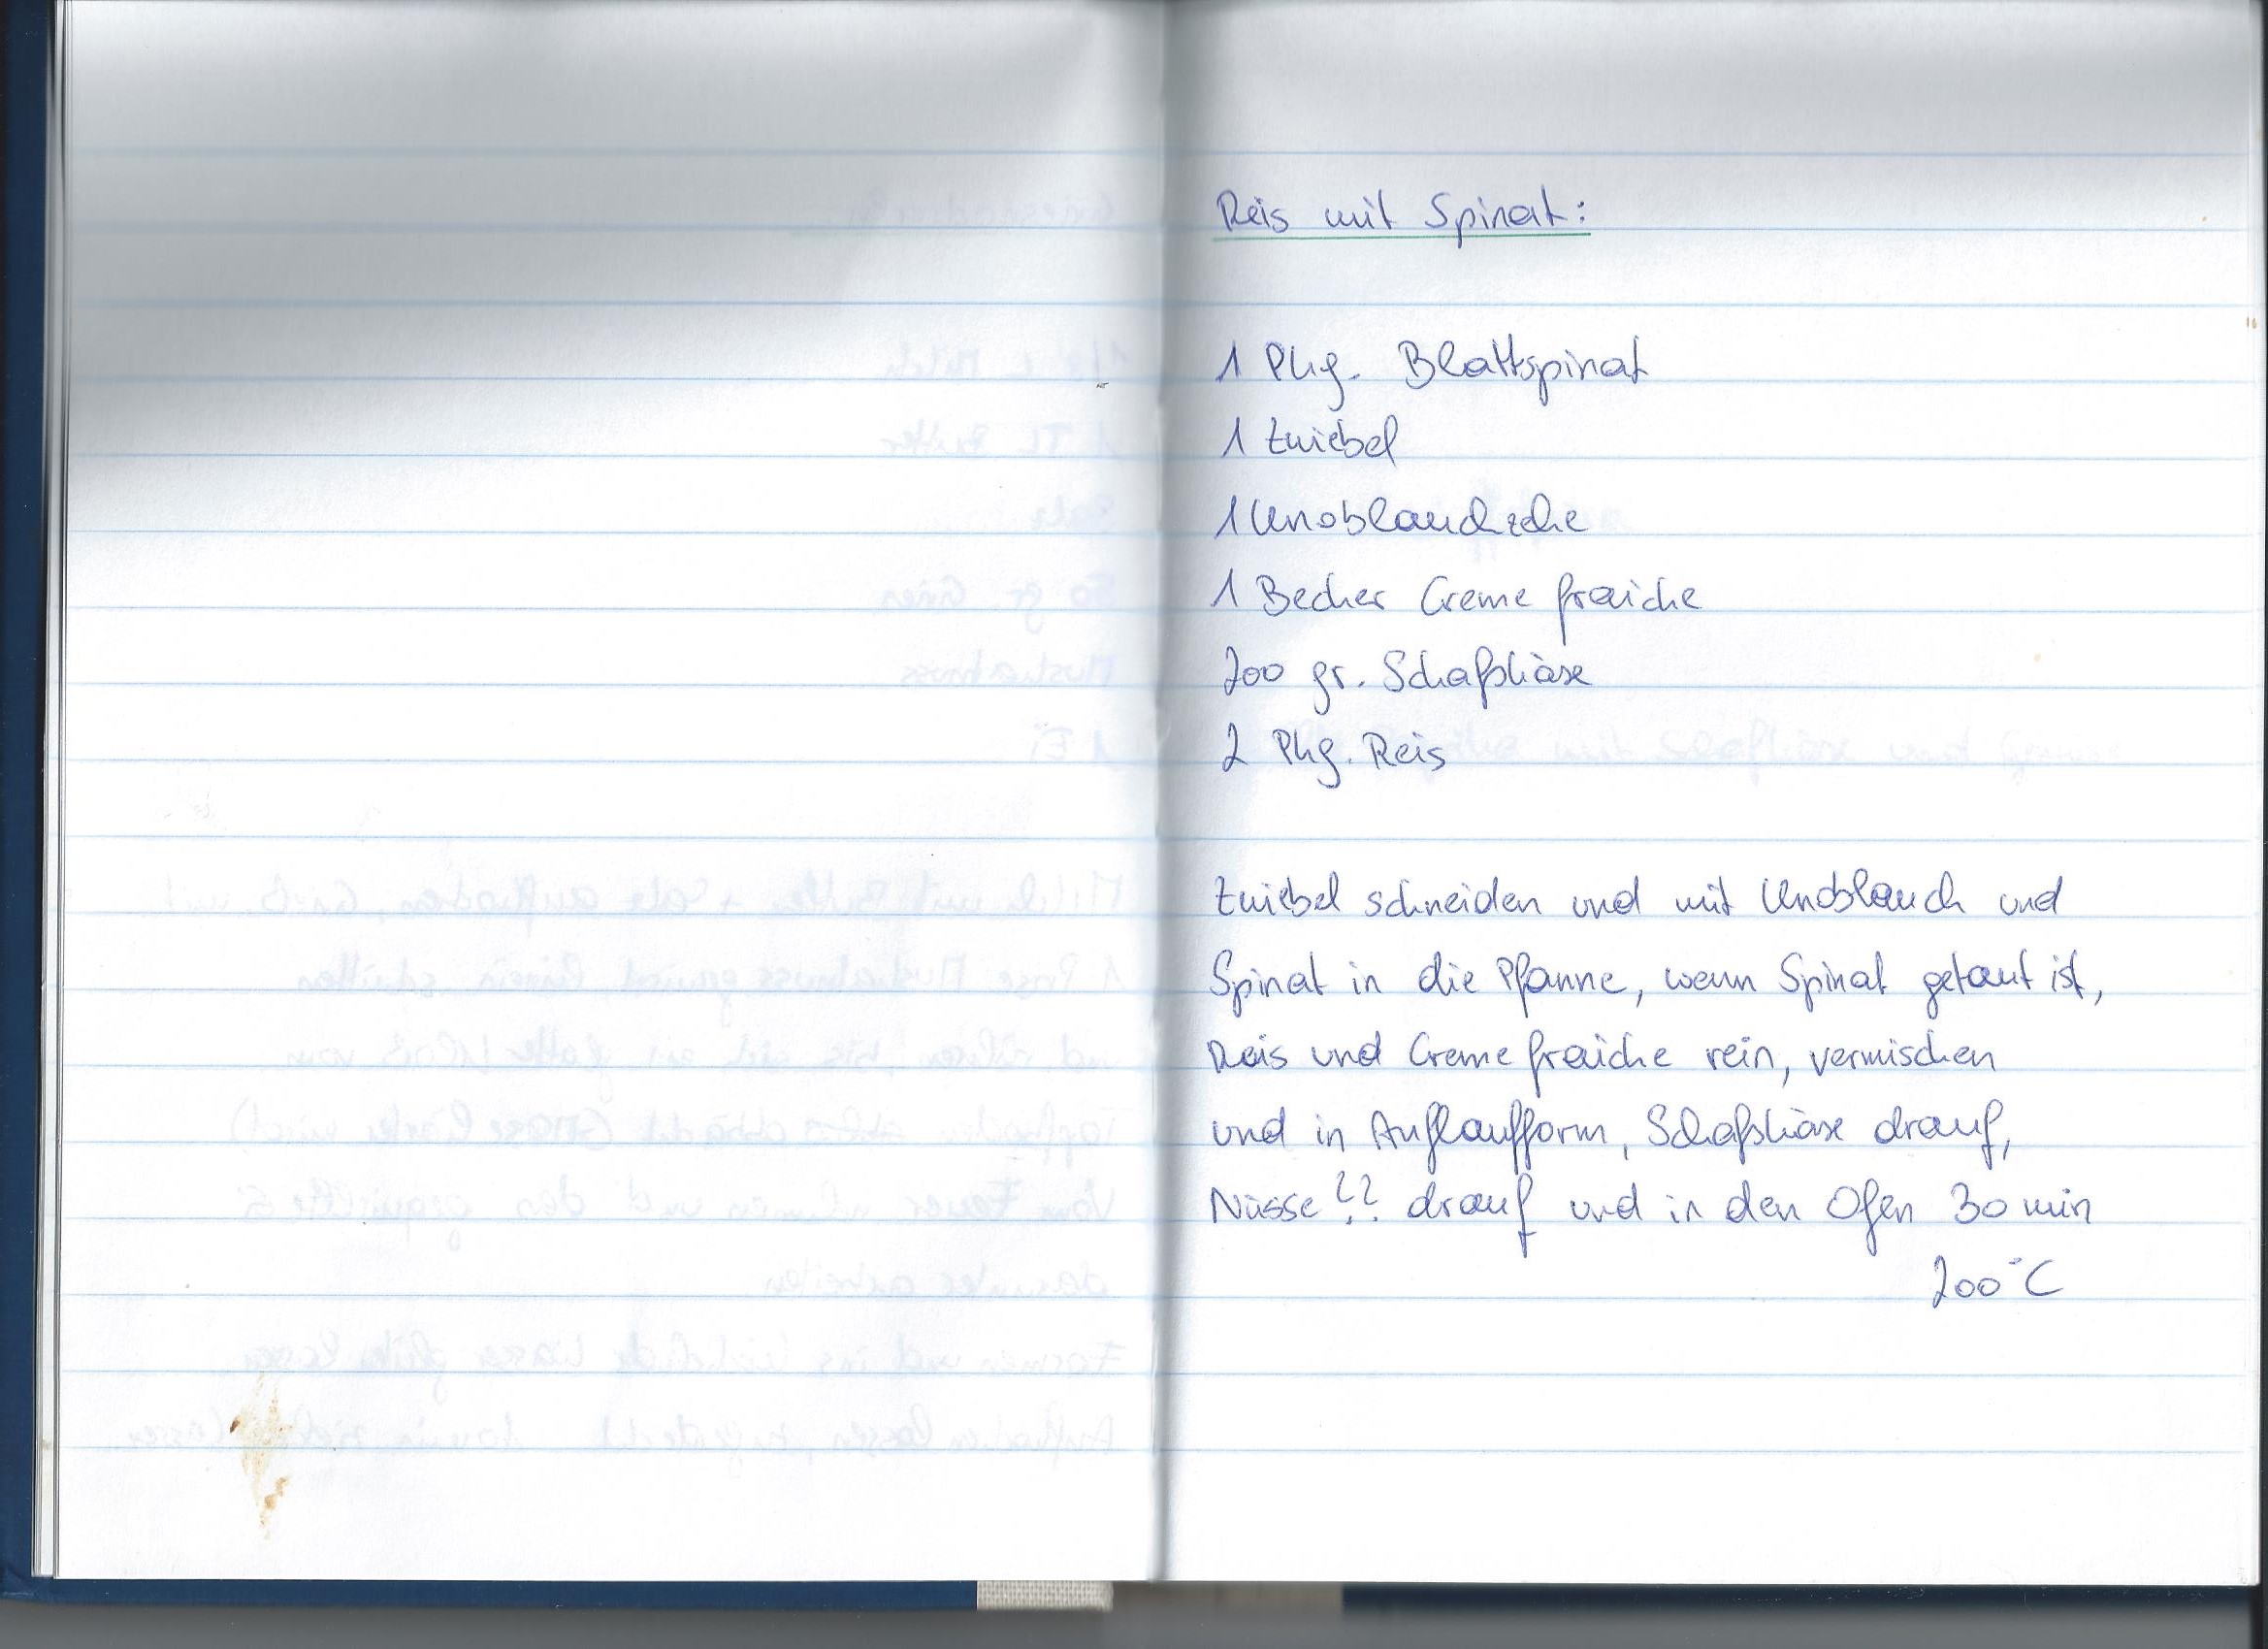 Reis mit Spinat:
1 Pkg. Blattspinat
1 Zwiebel
1 Knoblauchzehe
1 Becher Creme fraiche
200 gr. Schafskäse
2 Pkg. Reis
Zwiebel schneiden und mit Knoblauch und
Spinat in die Pfanne, wenn Spinat getaut ist,
Reis und Creme fraiche rein, vermischen
und in Auflaufform, Schafskäse drauf,
Nüsse?? drauf und in den Ofen 30 min
200°C